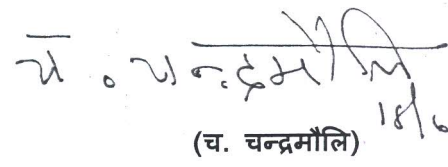 च. चन्द्रमौलि
18/6
(च. चन्द्रमौलि)